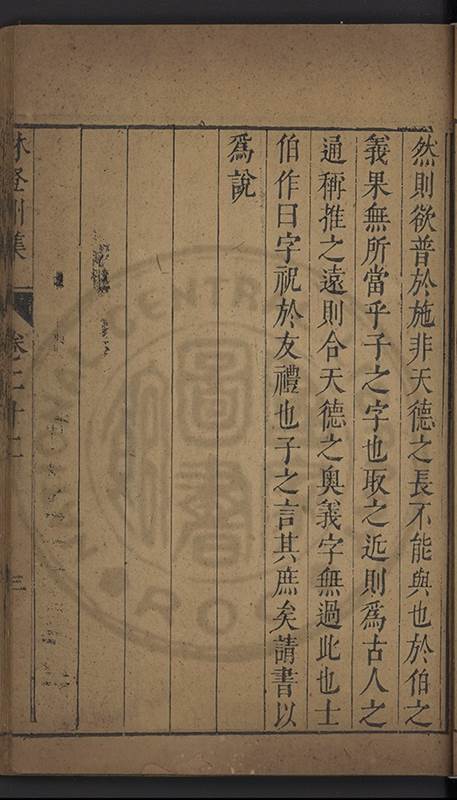 然則欲普於施非天德之長不能與也於伯之
義果無所當乎子之字也取之近則爲古人之
通稱推之遠則合天德之奧義字無過此也士
伯作曰字祝於友禮也子之言其庶矣請書以
爲說
林登州集
卷二十二
三